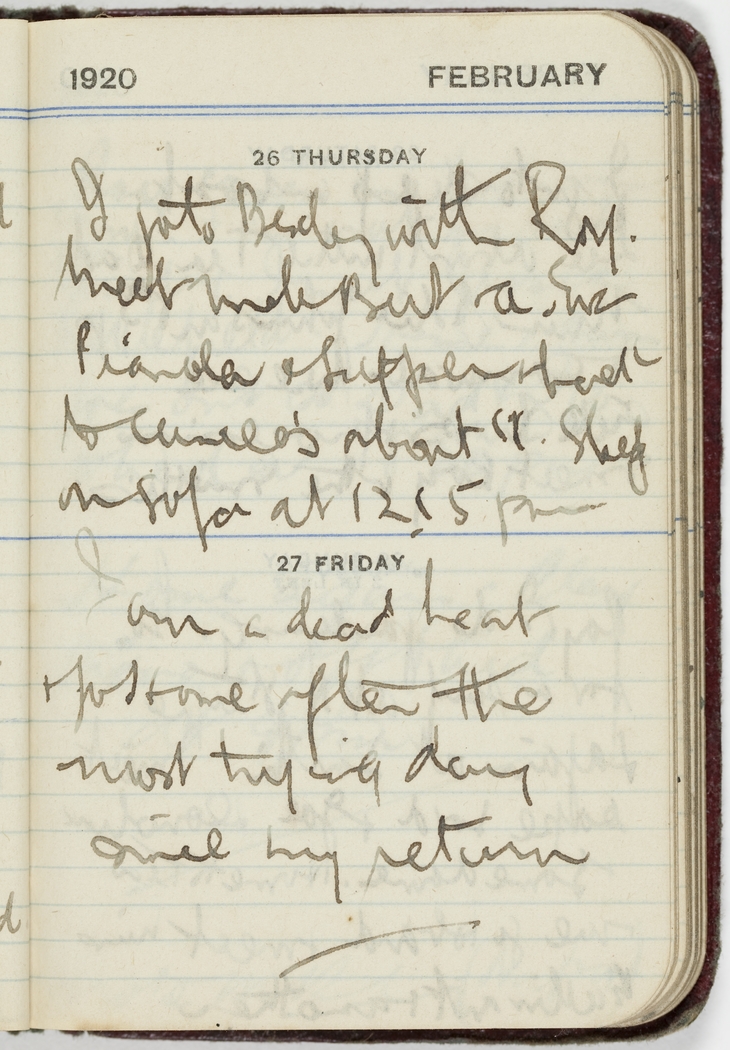 1920 FEBRUARY
26 THURSDAY
I go to Bexley with Roy.
Meet Uncle Bert a.
Pianola & supper & back
to Camelo's about 11. Sleep
on sofa at 12.15 pm
27 FRIDAY
I am a dead beat
& go home after the
most trying day
since my return